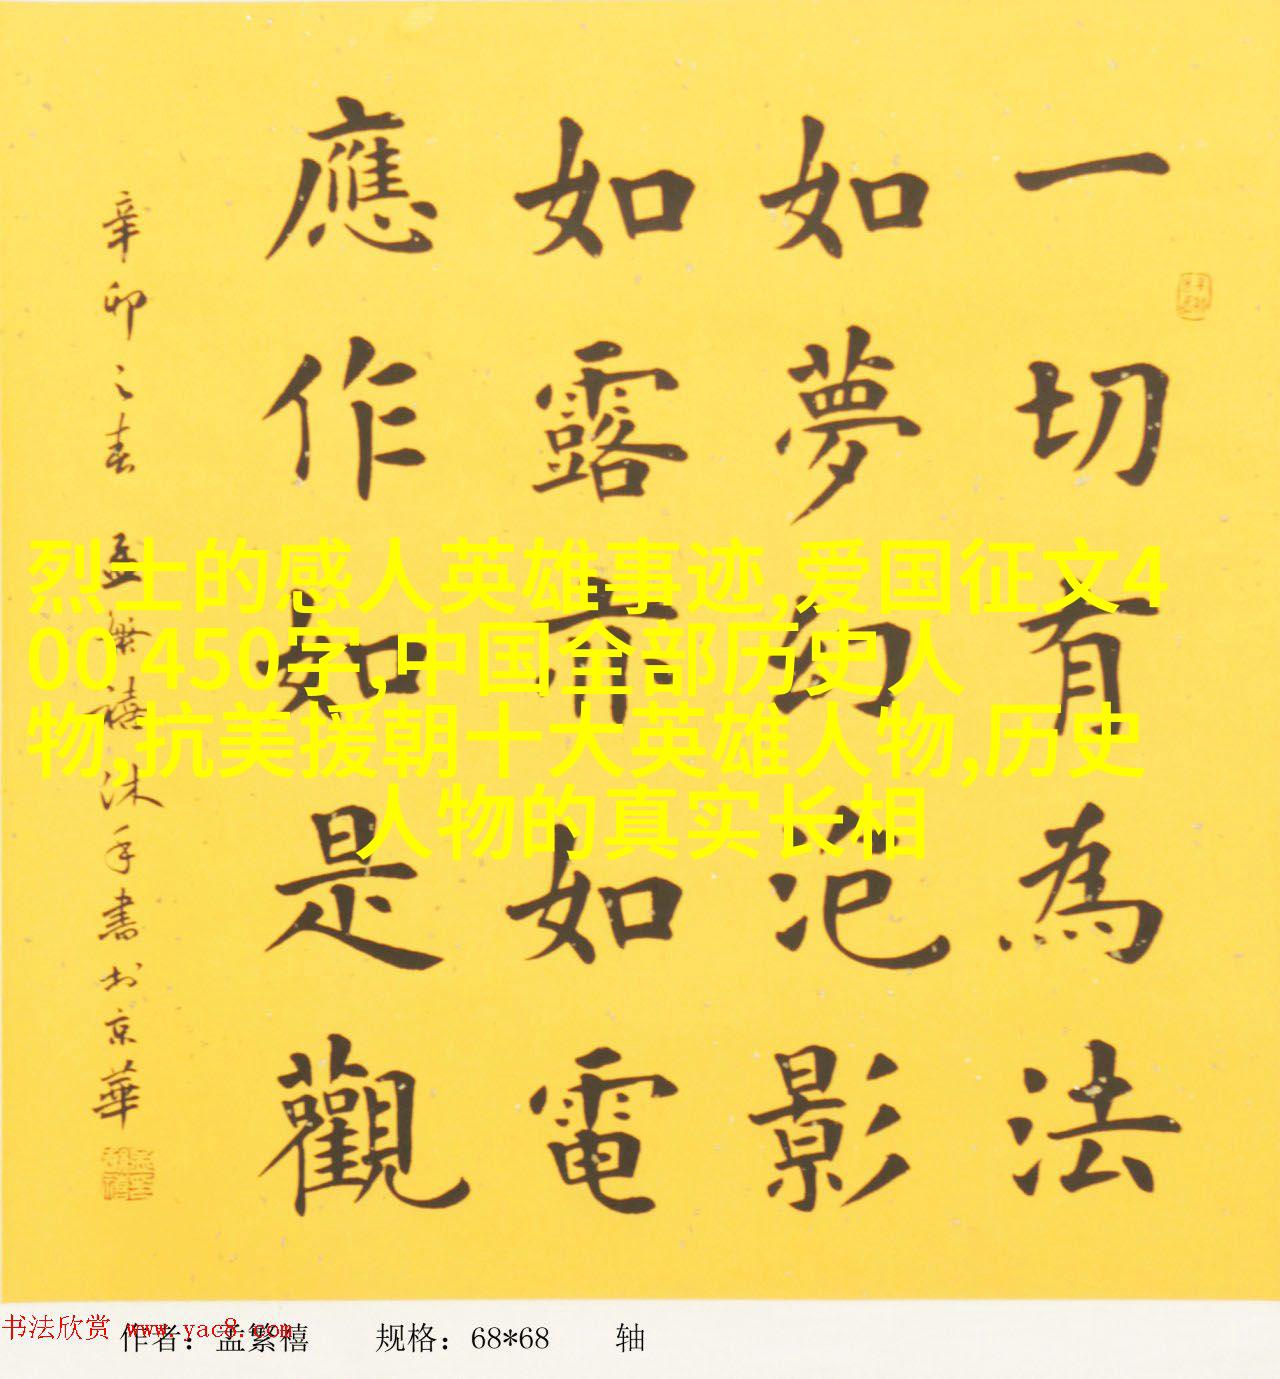 一切有為法
如夢幻泡影
如露亦如電
應作如是觀
辛卯之春 孟繁禧沐手書於京華
烈士的感人英雄事迹,爱国征文4
00 450字,中国全部历史人
物,抗美援朝十大英雄人物,历史
人物的真实长相
书法欣赏 www.yac8.com
作者：孟繁禧 规格：68*68 轴